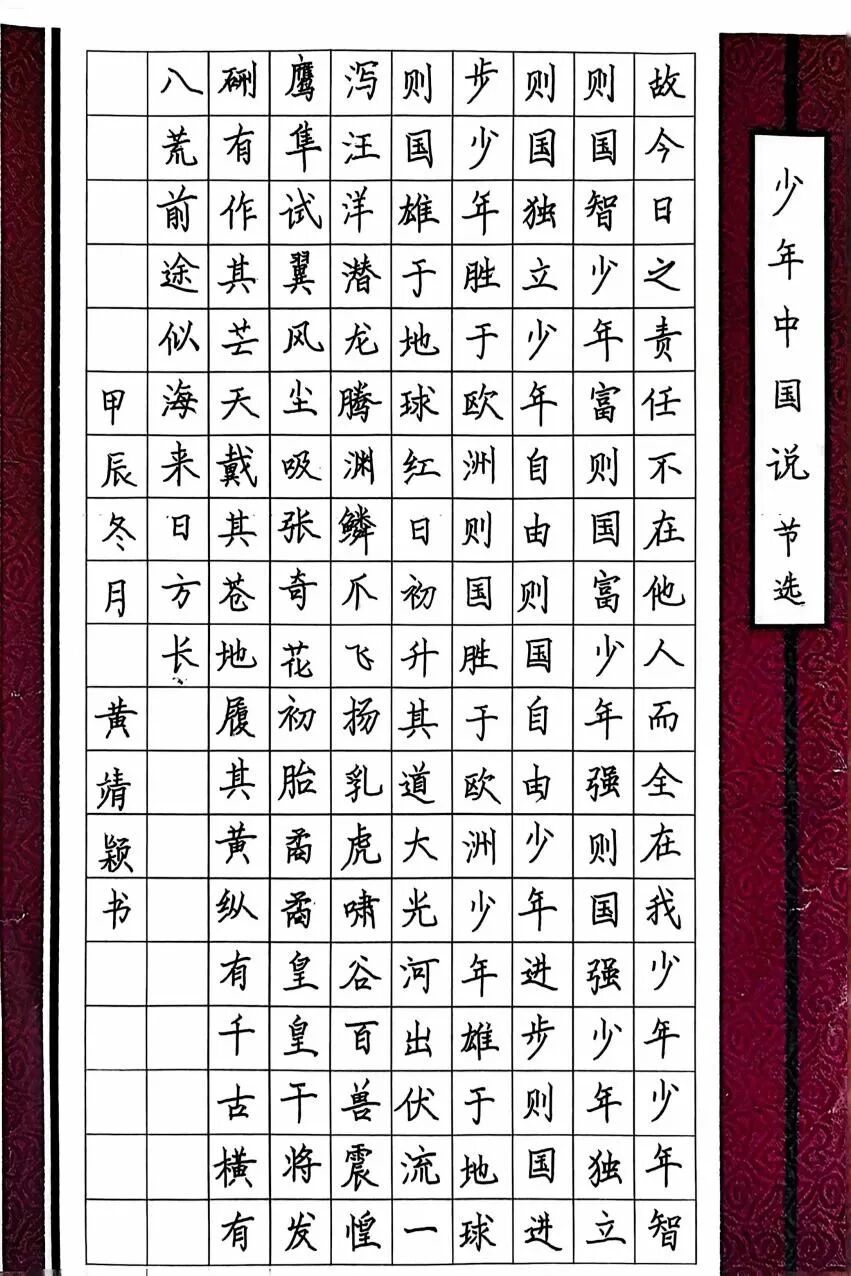 少年中国说 节选
故今日之责任不在他人而全在我少年少年智
则国智少年富则国富少年强则国强少年独立
则国独立少年自由则国自由少年进步则国进
步少年胜于欧洲则国胜于欧洲少年雄于地球
则国雄于地球红日初升其道大光河出伏流一
泻汪洋潜龙腾渊鳞爪飞扬乳虎啸谷百兽震惶
鹰隼试翼风尘吸张奇花初胎矞矞皇皇干将发
硎有作其芒天戴其苍地履其黄纵有千古横有
八荒前途似海来日方长
甲辰冬月 黄靖颖书